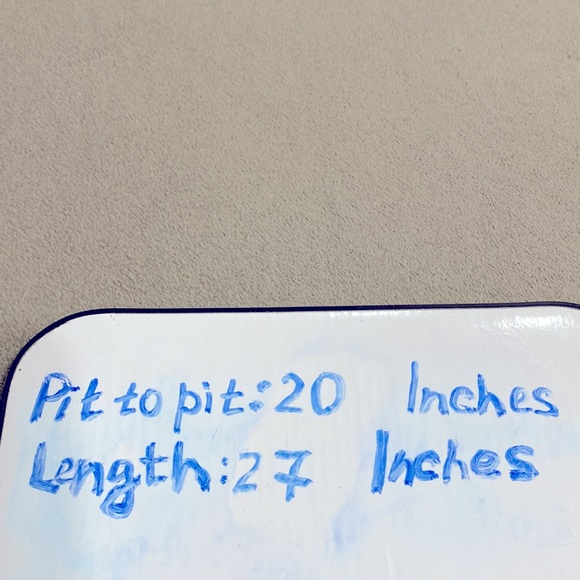 Pit to pit:20 Inches
Length:27 Inches